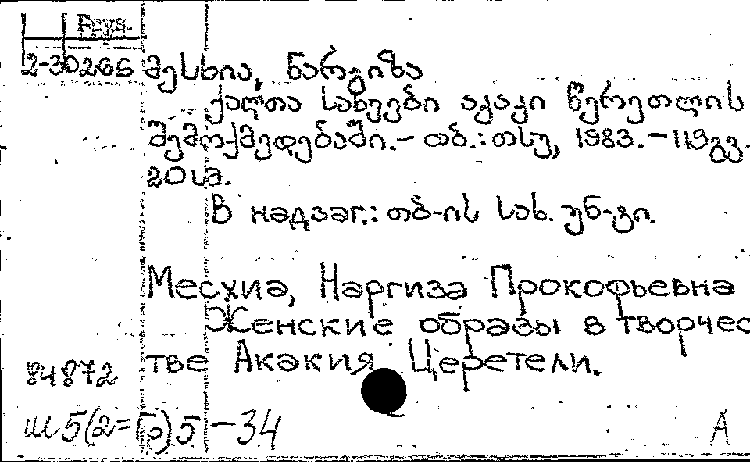 2-30266 მესხია, ნარგიზა
ქალთა სახეები აკაკი წერეთლის
შემოქმედებაში. - თბ.: თსუ, 1983. - 119გვ.
20 სმ.
В надзаг.: თბ-ის სახ. უნ-ტი.
Месхиа, Наргиза Прокофьевна
Женские образы в творчес
тве Акакия Церетели.
84872
ш5(2=Г)5-34
А